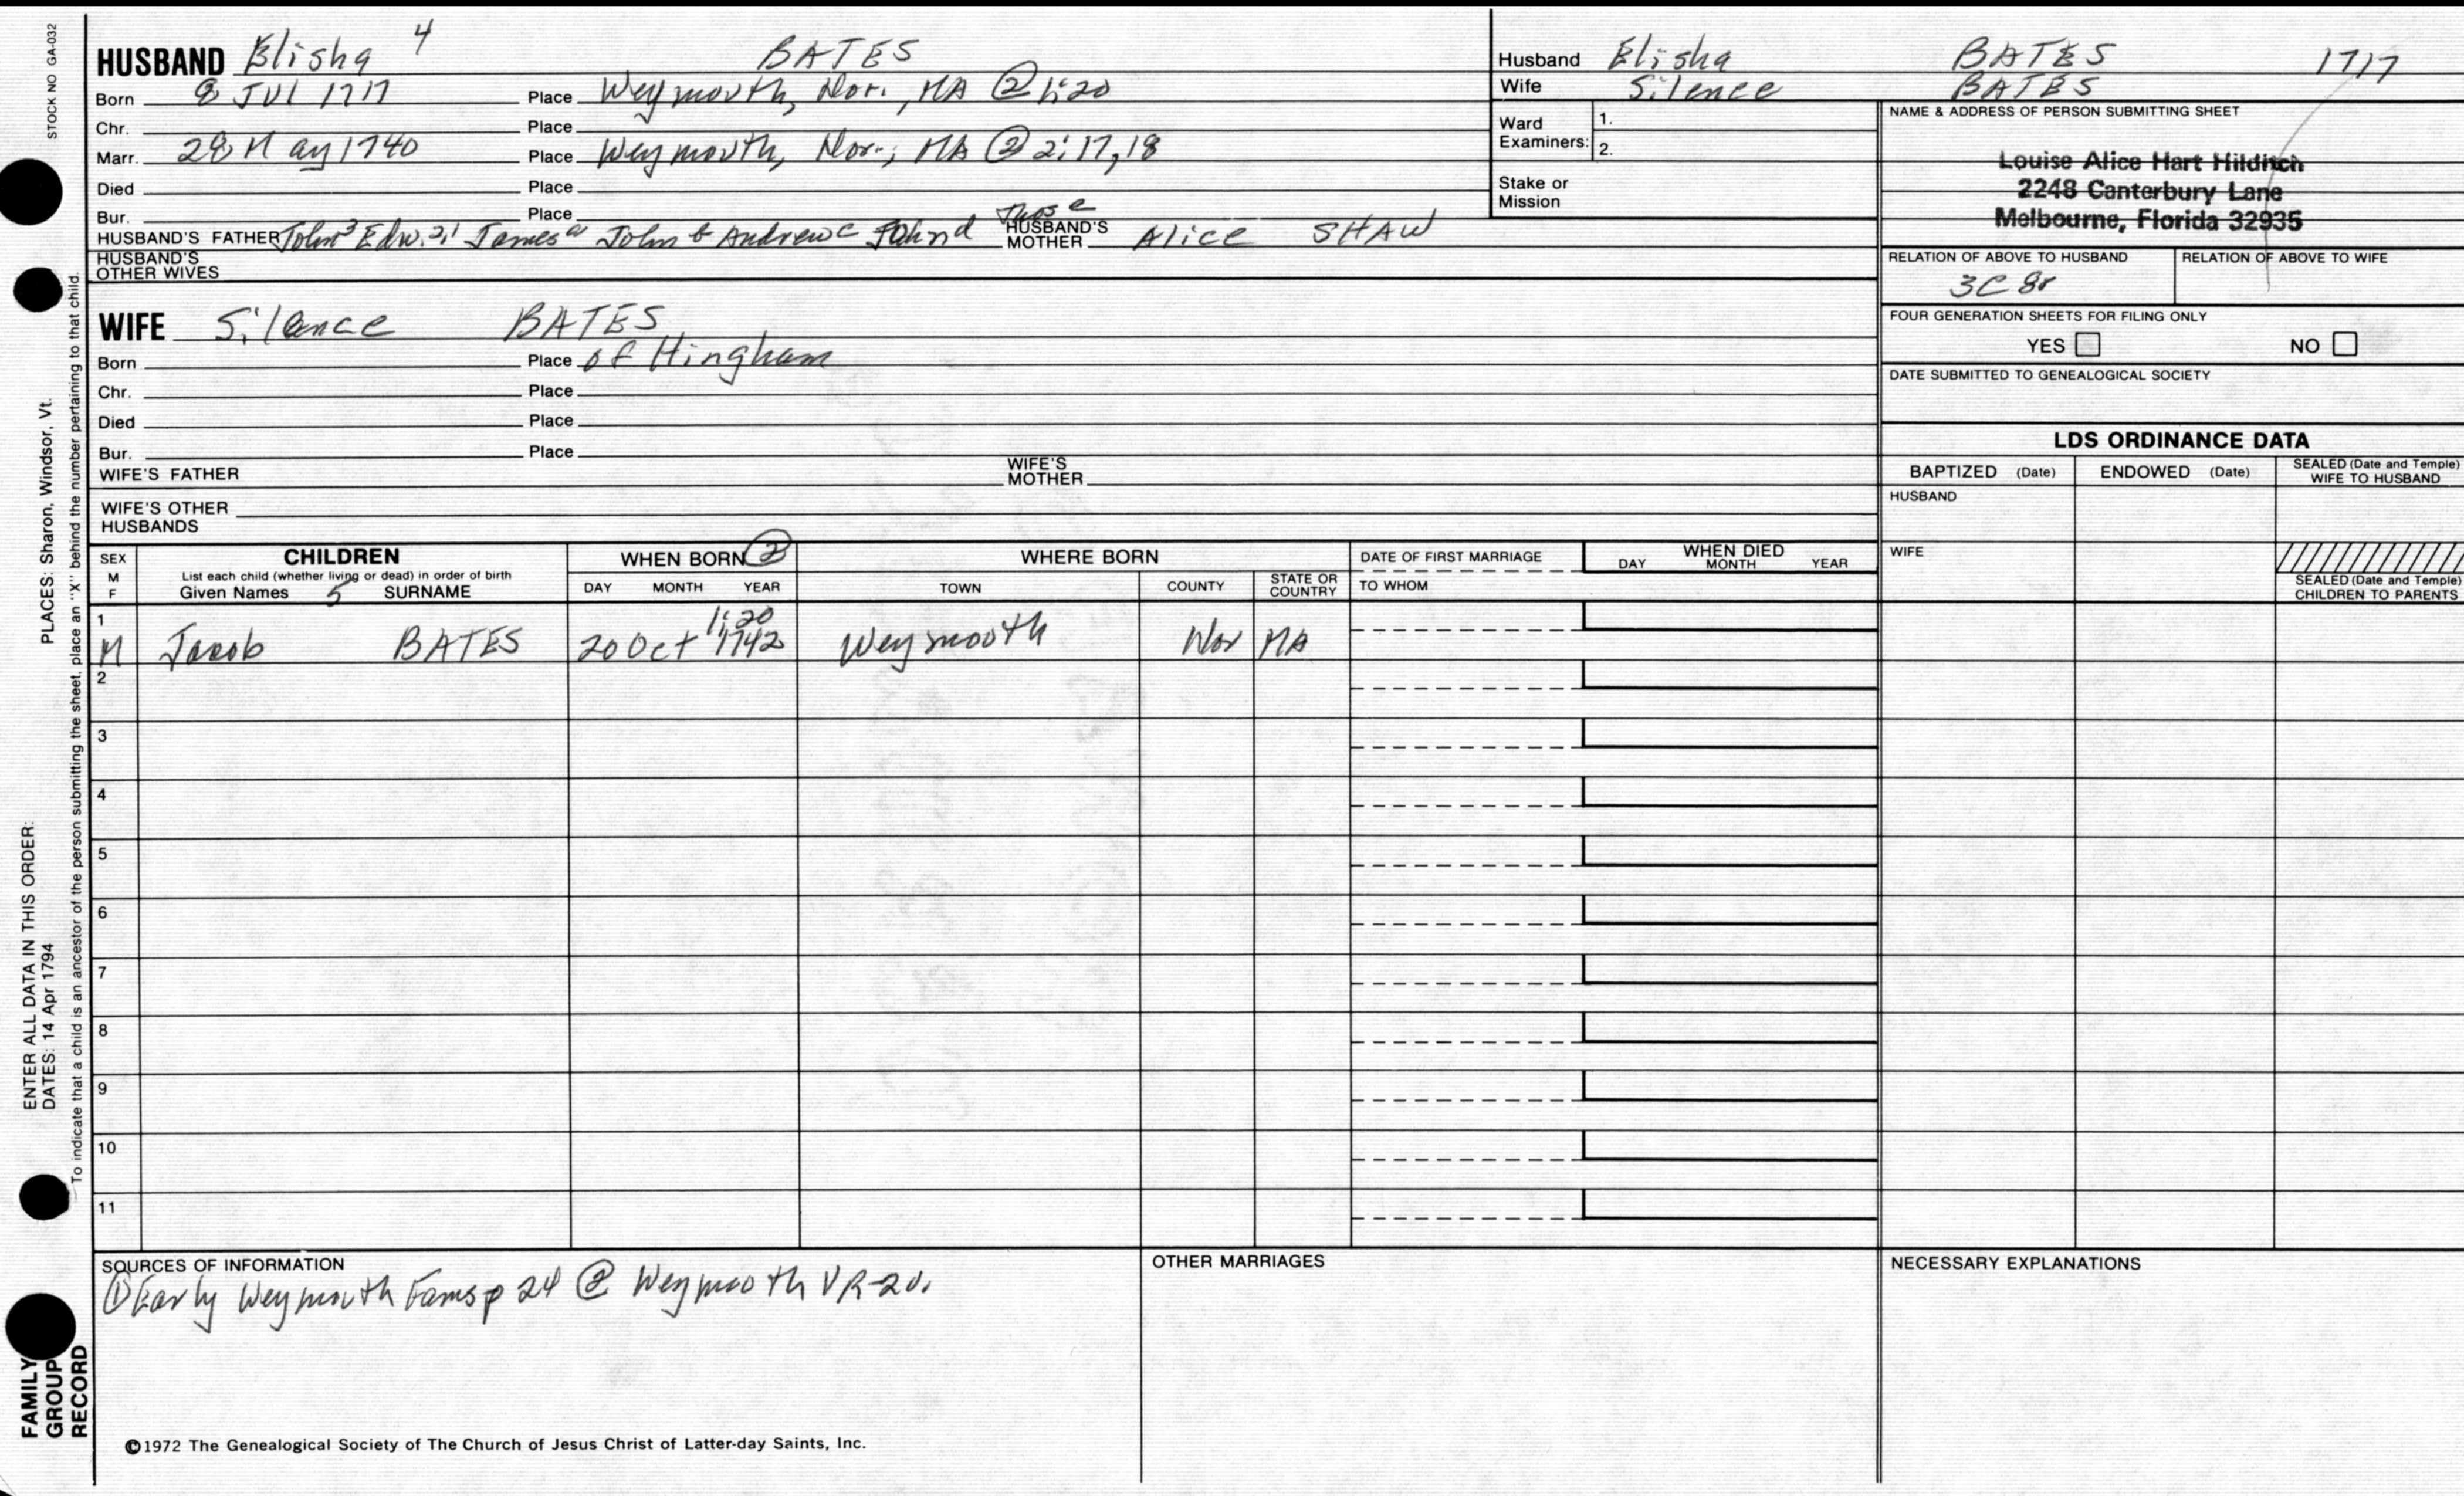 STOCK NO GA-032
HUSBAND Elisha 4 BATES
Born 8 JUl 1717 Place Weymouth, Nor., MA ② 1:20
Chr. Place
Marr. 28 May 1740 Place Weymouth, Nor., MA ② 2:17,18
Died Place
Bur. Place
HUSBAND'S FATHER John3 Edw.2,1 James a John b Andrew c John d Thos e HUSBAND'S MOTHER Alice SHAW
HUSBAND'S OTHER WIVES
WIFE Silence BATES
Born Place of Hingham
Chr. Place
Died Place
Bur. Place
WIFE'S FATHER WIFE'S MOTHER
WIFE'S OTHER HUSBANDS
Husband Elisha BATES 1717
Wife Silence BATES
Ward Examiners: 1.
2.
Stake or Mission
NAME & ADDRESS OF PERSON SUBMITTING SHEET
Louise Alice Hart Hilditch
2248 Canterbury Lane
Melbourne, Florida 32935
RELATION OF ABOVE TO HUSBAND RELATION OF ABOVE TO WIFE
3C 8r
FOUR GENERATION SHEETS FOR FILING ONLY
YES NO
DATE SUBMITTED TO GENEALOGICAL SOCIETY
LDS ORDINANCE DATA
BAPTIZED (Date) ENDOWED (Date) SEALED (Date and Temple) WIFE TO HUSBAND
HUSBAND
WIFE
SEALED (Date and Temple) CHILDREN TO PARENTS
SEX M F CHILDREN WHEN BORN ② WHERE BORN DATE OF FIRST MARRIAGE WHEN DIED
List each child (whether living or dead) in order of birth
Given Names 5 SURNAME DAY MONTH YEAR TOWN COUNTY STATE OR COUNTRY TO WHOM DAY MONTH YEAR
1 1:20
M Jacob BATES 20 Oct 1742 Weymouth Nor MA
2
3
4
5
6
7
8
9
10
11
SOURCES OF INFORMATION OTHER MARRIAGES NECESSARY EXPLANATIONS
① Early Weymouth Fams p 24 ② Weymouth VR-2v.
©1972 The Genealogical Society of The Church of Jesus Christ of Latter-day Saints, Inc.
FAMILY GROUP RECORD
ENTER ALL DATA IN THIS ORDER:
DATES: 14 Apr 1794 PLACES: Sharon, Windsor, Vt.
To indicate that a child is an ancestor of the person submitting the sheet, place an "X" behind the number pertaining to that child.